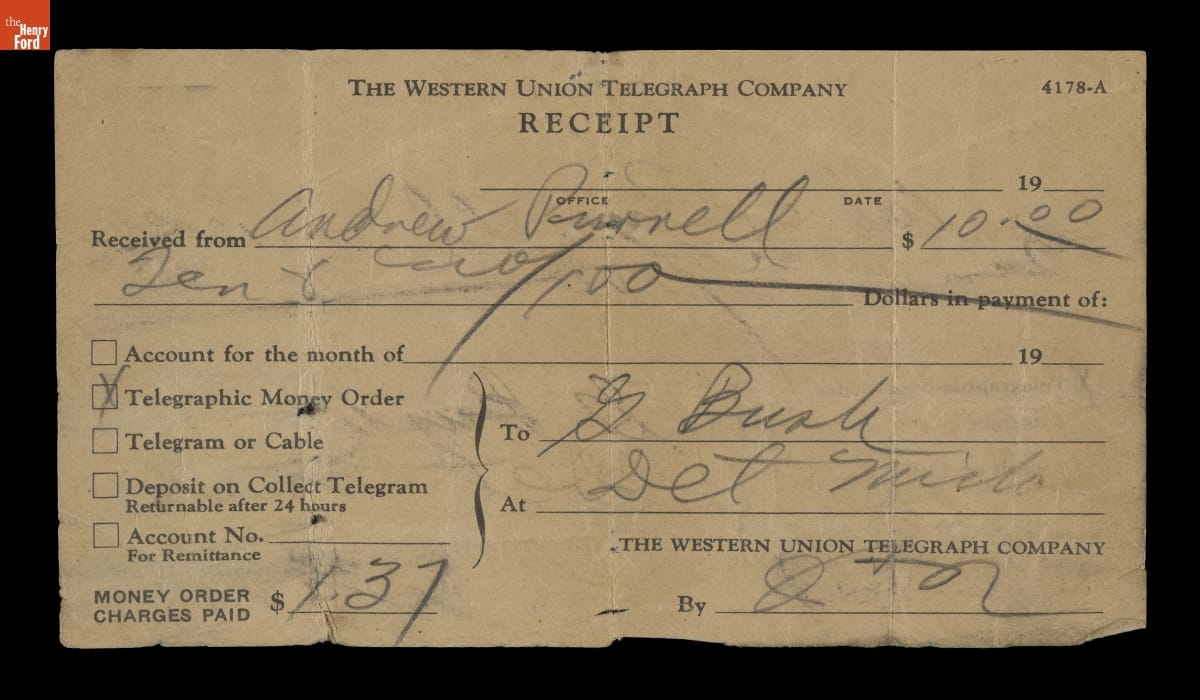 the
Henry
Ford
THE WESTERN UNION TELEGRAPH COMPANY 4178-A
RECEIPT
19
OFFICE DATE
Received from Andrew Purnell $ 10.00
Ten & 00/100 Dollars in payment of:
Account for the month of 19
X Telegraphic Money Order
To G Bush
Telegram or Cable
Deposit on Collect Telegram
Returnable after 24 hours
At Det Mich
Account No.
For Remittance
THE WESTERN UNION TELEGRAPH COMPANY
MONEY ORDER
CHARGES PAID $ 1.37
By